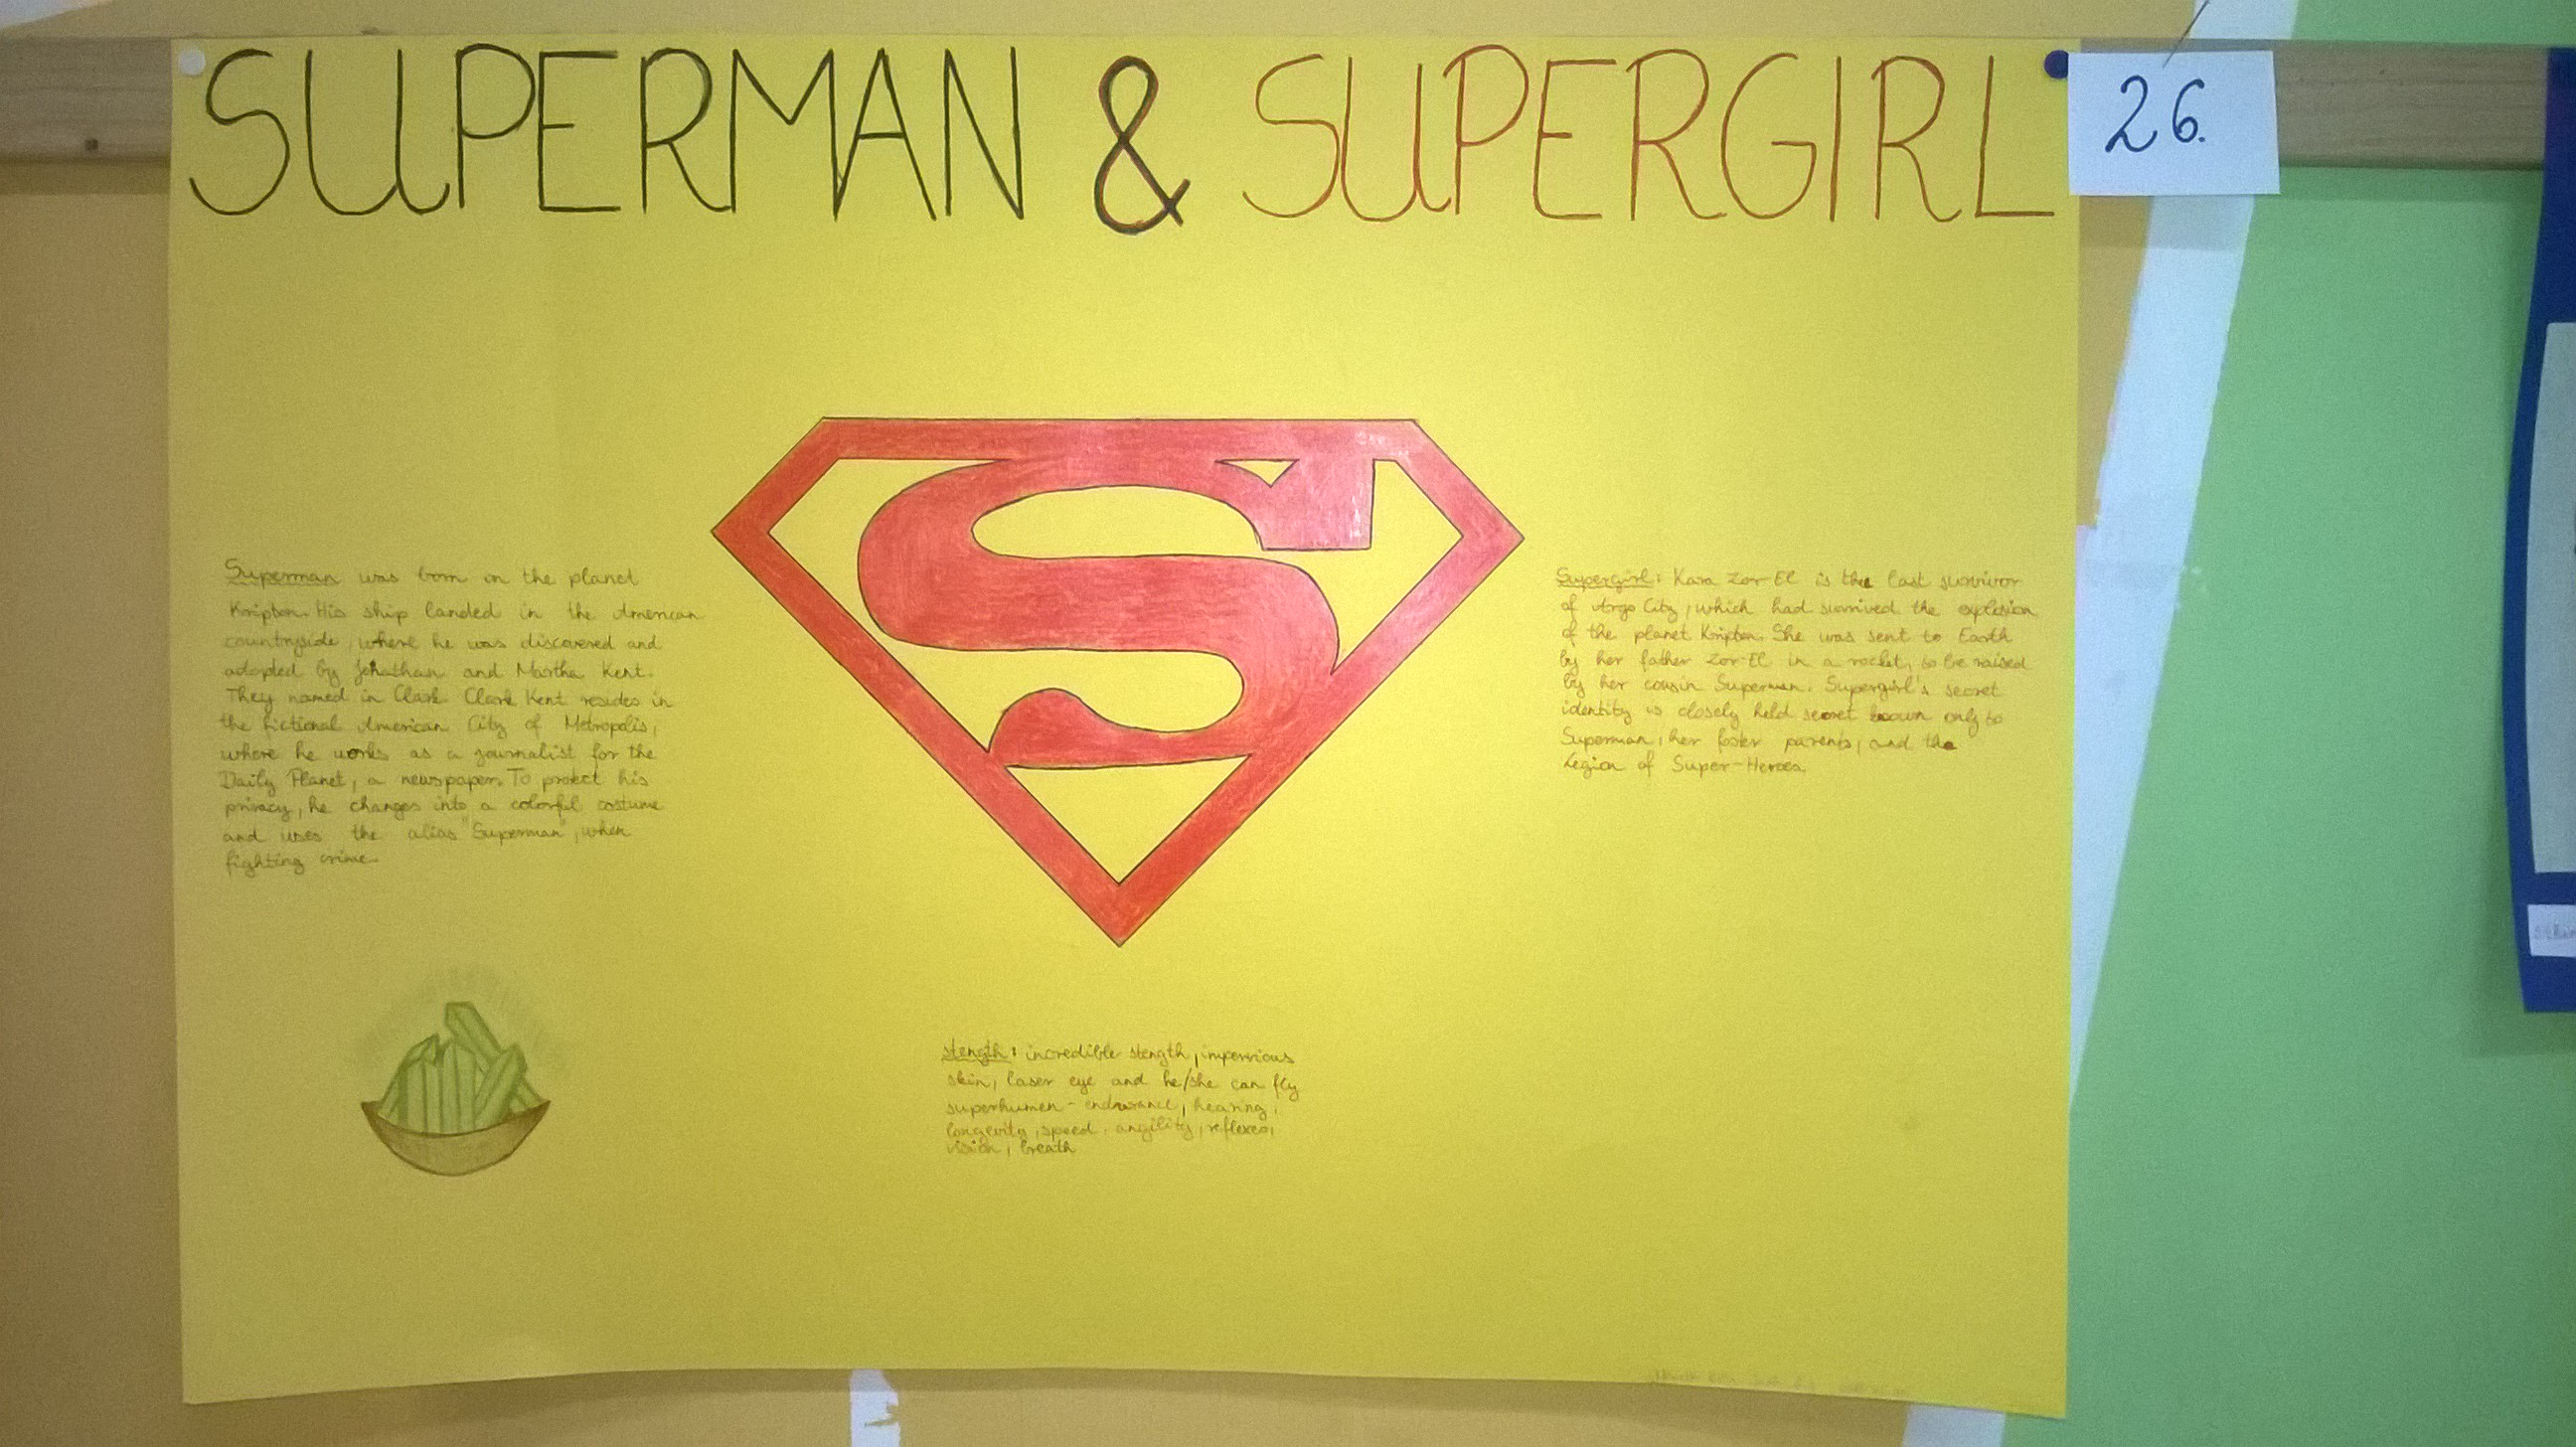 SUPERMAN & SUPERGIRL
26.
Superman was born on the planet
Kripton. His ship landed in the American
countryside, where he was discovered and
adopted by Johathan and Martha Kent.
They named in Clark Clark Kent resides in
the fictional American City of Metropolis,
where he works as a journalist for the
Daily Planet, a newspaper. To protect his
privacy, he changes into a colorful costume
and uses the alias "Superman", when
fighting crime.
Supergirl: Kara Zor-El is the last survivor
of Argo City, which had survived the explosion
of the planet Kripton. She was sent to Earth
by her father Zor-El in a rocket, to be raised
by her cousin Superman. Supergirl's secret
identity is closely held secret known only to
Superman, her foster parents, and the
Legion of Super-Heroes.
S
stength: incredible stength, impervious
skin, laser eye and he/she can fly
superhumen - endurance, hearing,
longevity, speed, angility, reflexes,
vision, breath